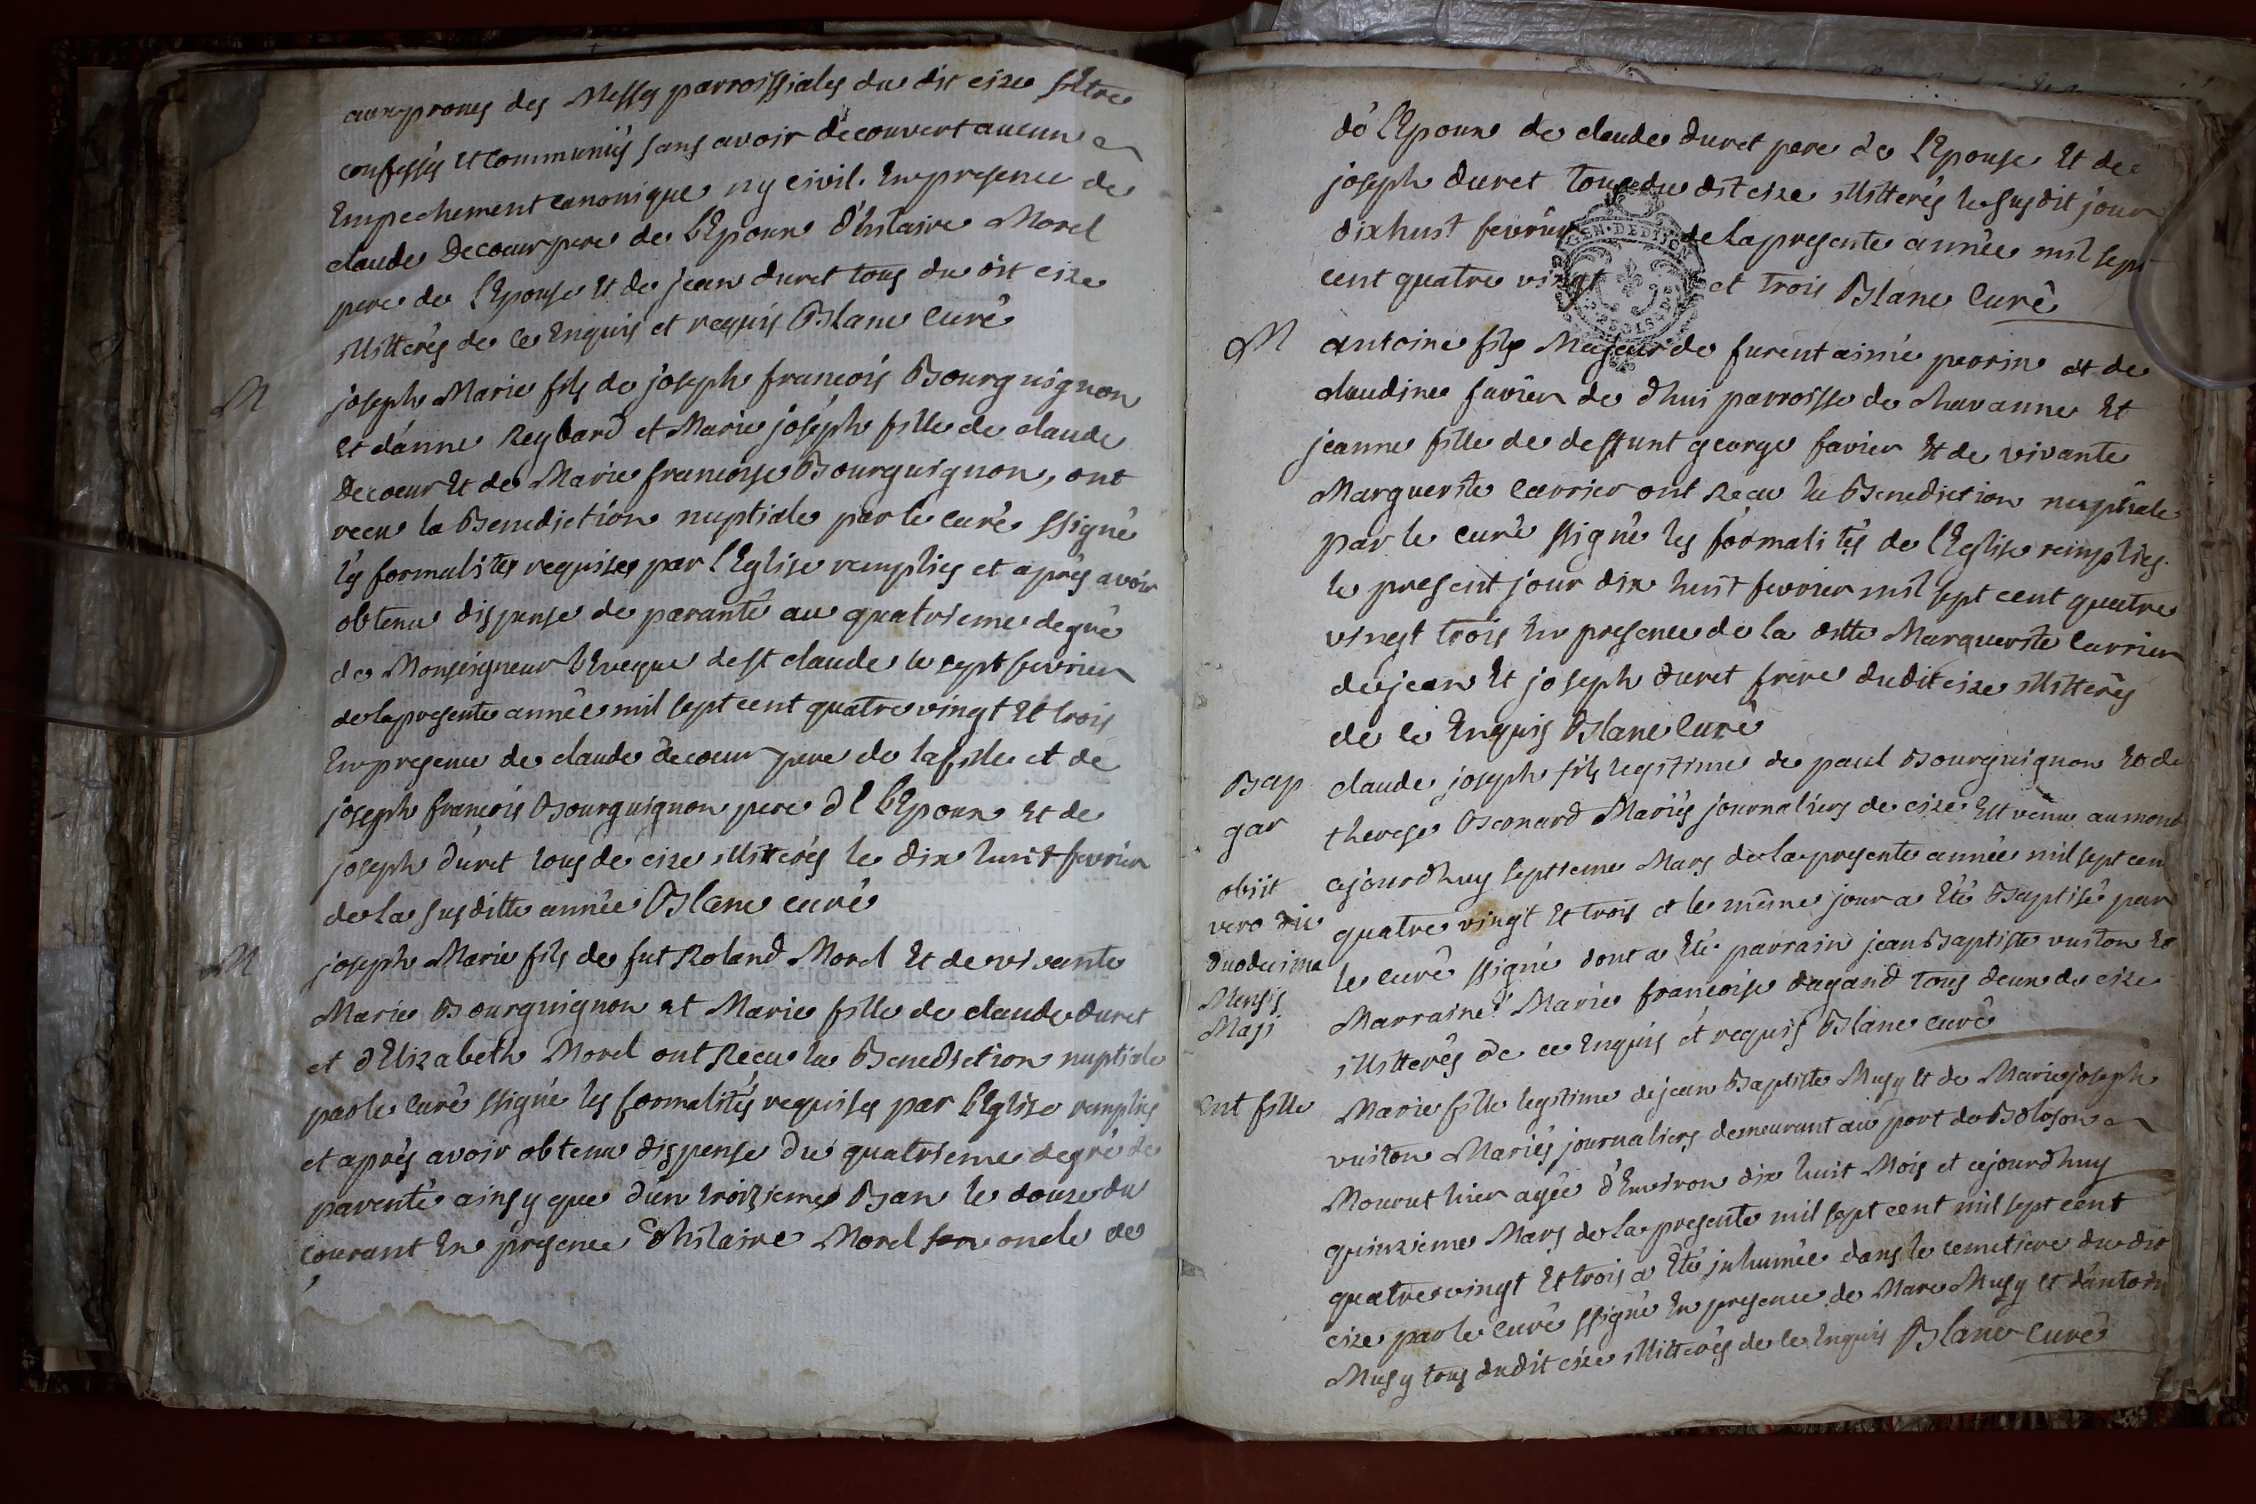 aux prones des Messes parroissiales du dit cize s'Etre
confessés et communiés sans avoir decouvert aucun
Empechement canonique ny civil. En presence de
claude Decoeur pere de l'Epoux d'hilaire Morel
pere de l'Epouse et de jean duret tous du dit cize
illitterés de ce Enquis et requis Blanc curé
M
joseph Marie fils de joseph francois Bourguignon
et d'anne Reybard et Marie joseph fille de claude
Decoeur Et de Marie francoise Bourguignon, ont
recu la Benediction nuptiale par le curé ssigné
les formalités requises par l'Eglise remplies et après avoir
obtenu dispense de paranté au quatrieme degré
de Monseigneur l'Eveque de st claude le sept fevrier
de la presente année mil sept cent quatre vingt Et trois
En presence de claude decoeur pere de la fille et de
joseph francois Bourguignon pere de l'Epoux Et de
joseph duret tous de cize illiterés le dix huit fevrier
de la susditte année Blanc curé
M
joseph Marie fils de fut Roland Morel Et de vivante
Marie Bourguignon et Marie fille de claude duret
et d'Elizabeth Morel ont Recu la Benediction nuptiale
par le curé ssigné les formalités requises par l'Eglise remplies
et après avoir obtenu dispense du quatrieme degré de
parenté ainsy que d'un troizieme Ban le douze du
courant En presence d'hilaire Morel son oncle de
de l'Epoux de claude duret pere de l'Epouse Et de
joseph duret tous du dit cize illitterés le susdit jour
dix huit fevrier de la presente année mil sept
cent quatre vingt et trois Blanc Curé
M
antoine fils Majeur de furent aimé perrin et de
claudine favier de dhui parroisse de chavanne Et
jeanne fille de deffunt george favier Et de vivante
Marguerite carrier ont Recu la Benediction nuptiale
par le curé ssigné les formalités de l'Eglise remplies
le present jour dix huit fevrier mil sept cent quatre
vingt trois En presence de la ditte Marguerite Carrier
de jean Et joseph duret frere dudit cize illitterés
de ce Enquis Blanc Curé
Bap
gar
obiit
vero die
duodecima
Mensis
Maji
claude joseph fils legitime de paul Bourguignon Et de
therese Bernard Mariés journaliers de cize Est venu au mond
cejourdhuy septieme Mars de la presente année mil sept cen
quatre vingt Et trois et le même jour a Eté Baptisé par
le curé ssigné dont a Eté parrain jean Baptiste vuiton Et
Marraine Marie francoise dagand tous deux de cize
illitterés de ce Enquis et requis Blanc curé
Ent fille
Marie fille legitime de jean Baptiste Musy Et de Marie joseph
vuiton Mariés journaliers demeurant au port de Boloson
Mourut hier agée d'Environ dix huit Mois et cejourdhuy
quinzieme Mars de la presente mil sept cent mil sept cent
quatre vingt Et trois a Eté inhumée dans le cemetiere du dit
cize par le curé ssigné En presence de Marc Musy et d'antoin
Musy tous dudit cize illitterés de ce Enquis Blanc Curé